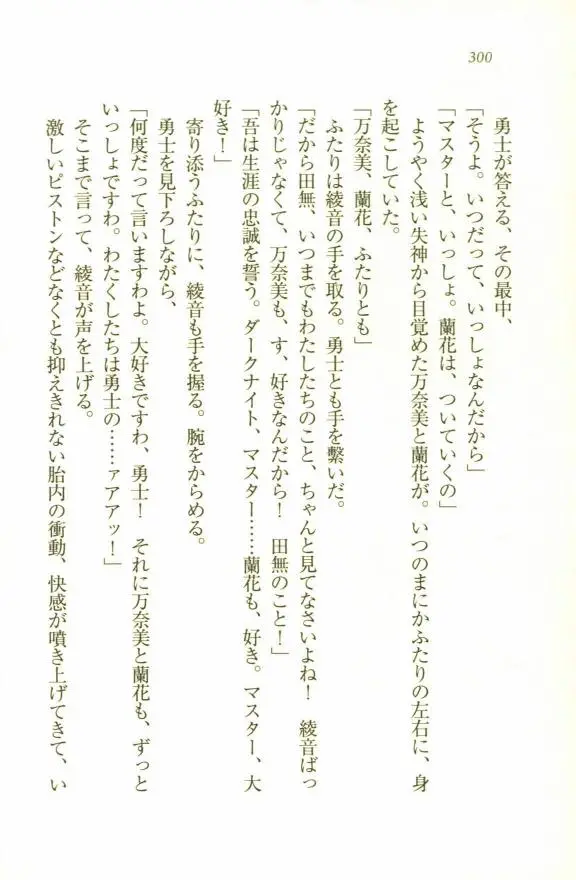 300
勇士が答える、その最中、
「そうよ。いつだって、いっしょなんだから」
「マスターと、いっしょ。蘭花は、ついていくの」
ようやく浅い失神から目覚めた万奈美と蘭花が。いつのまにかふたりの左右に、身
を起こしていた。
「万奈美、蘭花、ふたりとも」
ふたりは綾音の手を取る。勇士とも手を繋いだ。
「だから田無、いつまでもわたしたちのこと、ちゃんと見てなさいよね！　綾音ばっ
かりじゃなくて、万奈美も、す、好きなんだから！　田無のこと！」
「吾は生涯の忠誠を誓う。ダークナイト、マスター……蘭花も、好き。マスター、大
好き！」
寄り添うふたりに、綾音も手を握る。腕をからめる。
勇士を見下ろしながら、
「何度だって言いますわよ。大好きですわ、勇士！　それに万奈美と蘭花も、ずっと
いっしょですわ。わたくしたちは勇士の……ァアアッ！」
そこまで言って、綾音が声を上げる。
激しいピストンなどなくとも抑えきれない胎内の衝動、快感が噴き上げてきて、い